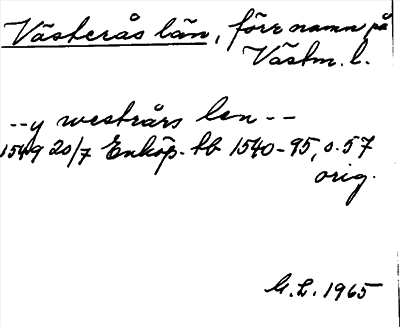 Västerås län, före namn på
Västm. l.
--y westrårs len--
1549 20/7 Enköp. tb 1540-95, o. 57
orig.
G.L. 1965